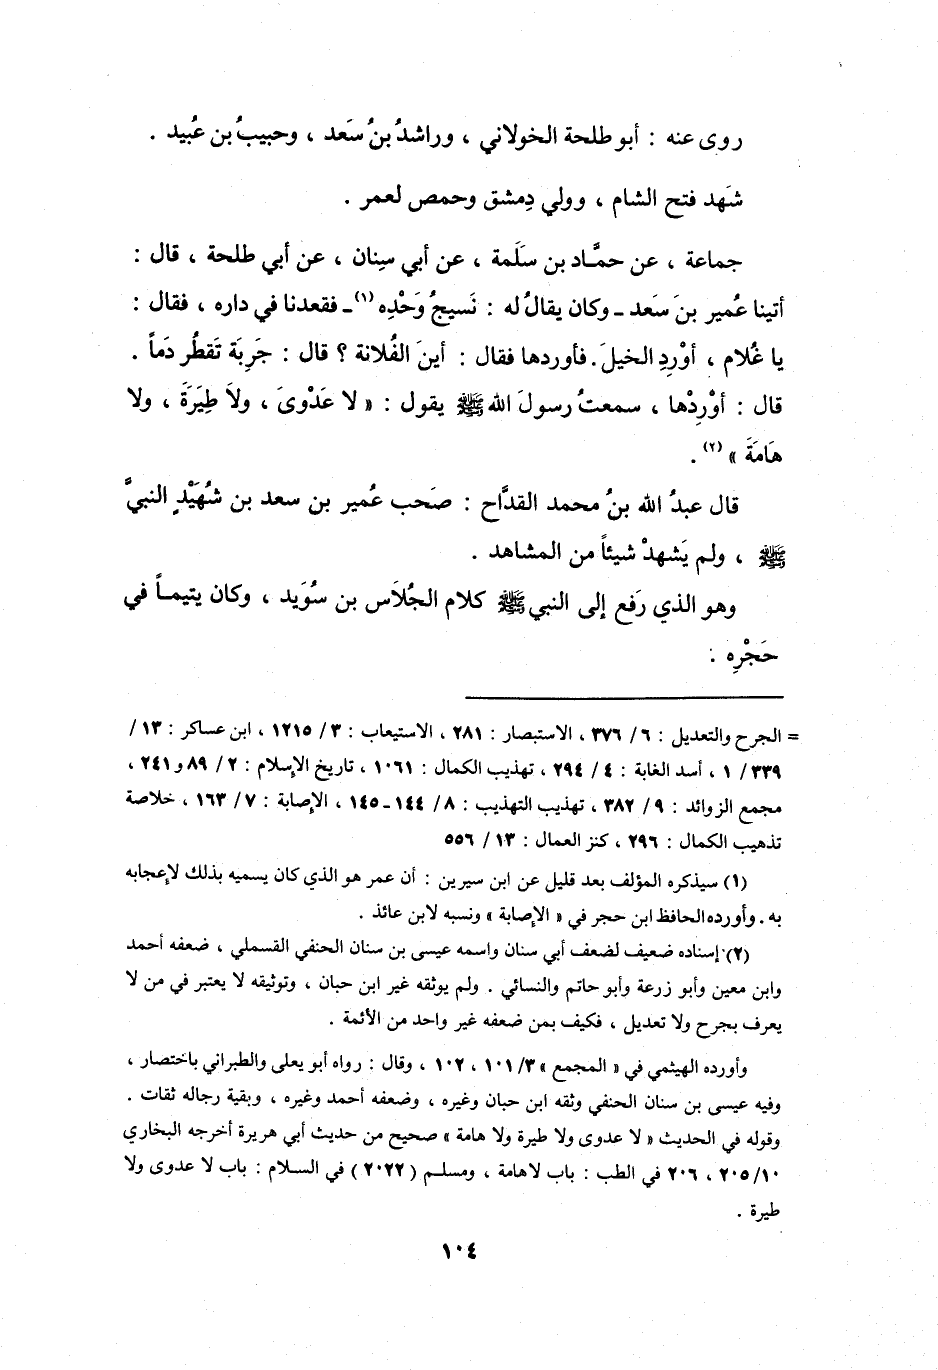 روى عنه : أبو طلحة الخولاني ، وراشدُ بنُ سَعد ، وحبيبُ بن عُبيد .
شَهد فتح الشام ، وولي دِمشق وحمص لعمر .
جماعة ، عن حمَّاد بن سَلَمة ، عن أبي سِنان ، عن أبي طلحة ، قال :
أتينا عُمير بنَ سَعد ـ وكان يقالُ له : نَسيجُ وَحْدِه (١) ـ فقعدنا في داره ، فقال :
يا غُلام ، أوْرِدِ الخيلَ . فأوردها فقال : أينَ الفُلانة ؟ قال : جَرِبَة تَقطُر دَماً .
قال : أوْرِدْها ، سمعتُ رسولَ الله ﷺ يقول : « لا عَدْوىَ ، ولاَ طِيَرَةَ ، ولا
هَامَةَ » (٢) .
قال عبدُ الله بنُ محمد القدَّاح : صَحب عُمير بن سعد بن شُهَيْدٍ النبيَّ
ﷺ ، ولم يَشهدْ شيئاً من المشاهد .
وهو الذي رَفع إلى النبي ﷺ كلام الجُلاَس بن سوُيَد ، وكان يتيمـاً في
حَجْرِه :
= الجرح والتعديل : ٦ / ٣٧٦ ، الاستبصار : ٢٨١ ، الاستيعاب : ٣ / ١٢١٥ ، ابن عساكر : ١٣ /
٣٣٩ / ١ ، أسد الغابة : ٤ / ٢٩٤ ، تهذيب الكمال : ١٠٦١ ، تاريخ الإسلام : ٢ / ٨٩ و ٢٤١ ،
مجمع الزوائد : ٩ / ٣٨٢ ، تهذيب التهذيب : ٨ / ١٤٤ ـ ١٤٥ ، الإصابة : ٧ / ١٦٣ ، خلاصة
تذهيب الكمال : ٢٩٦ ، كنز العمال : ١٣ / ٥٥٦
(١) سيذكره المؤلف بعد قليل عن ابن سيرين : أن عمر هو الذي كان يسميه بذلك لإعجابه
به . وأورده الحافظ ابن حجر في « الإصابة » ونسبه لابن عائذ .
(٢) إسناده ضعيف لضعف أبي سنان واسمه عيسى بن سنان الحنفي القسملي ، ضعفه أحمد
وابن معين وأبو زرعة وأبو حاتم والنسائي . ولم يوثقه غير ابن حبان ، وتوثيقه لا يعتبر في من لا
يعرف بجرح ولا تعديل ، فكيف بمن ضعفه غير واحد من الأئمة .
وأورده الهيثمي في « المجمع » ٣/ ١٠١ ، ١٠٢ ، وقال : رواه أبو يعلى والطبراني باختصار ،
وفيه عيسى بن سنان الحنفي وثقه ابن حبان وغيره ، وضعفه أحمد وغيره ، وبقية رجاله ثقات .
وقوله في الحديث « لا عدوى ولا طيرة ولا هامة » صحيح من حديث أبي هريرة أخرجه البخاري
١٠/ ٢٠٥ ، ٢٠٦ في الطب : باب لا هامة ، ومسلـم ( ٢٠٢٢ ) في السلام : باب لا عدوى ولا
طيرة .
١٠٤